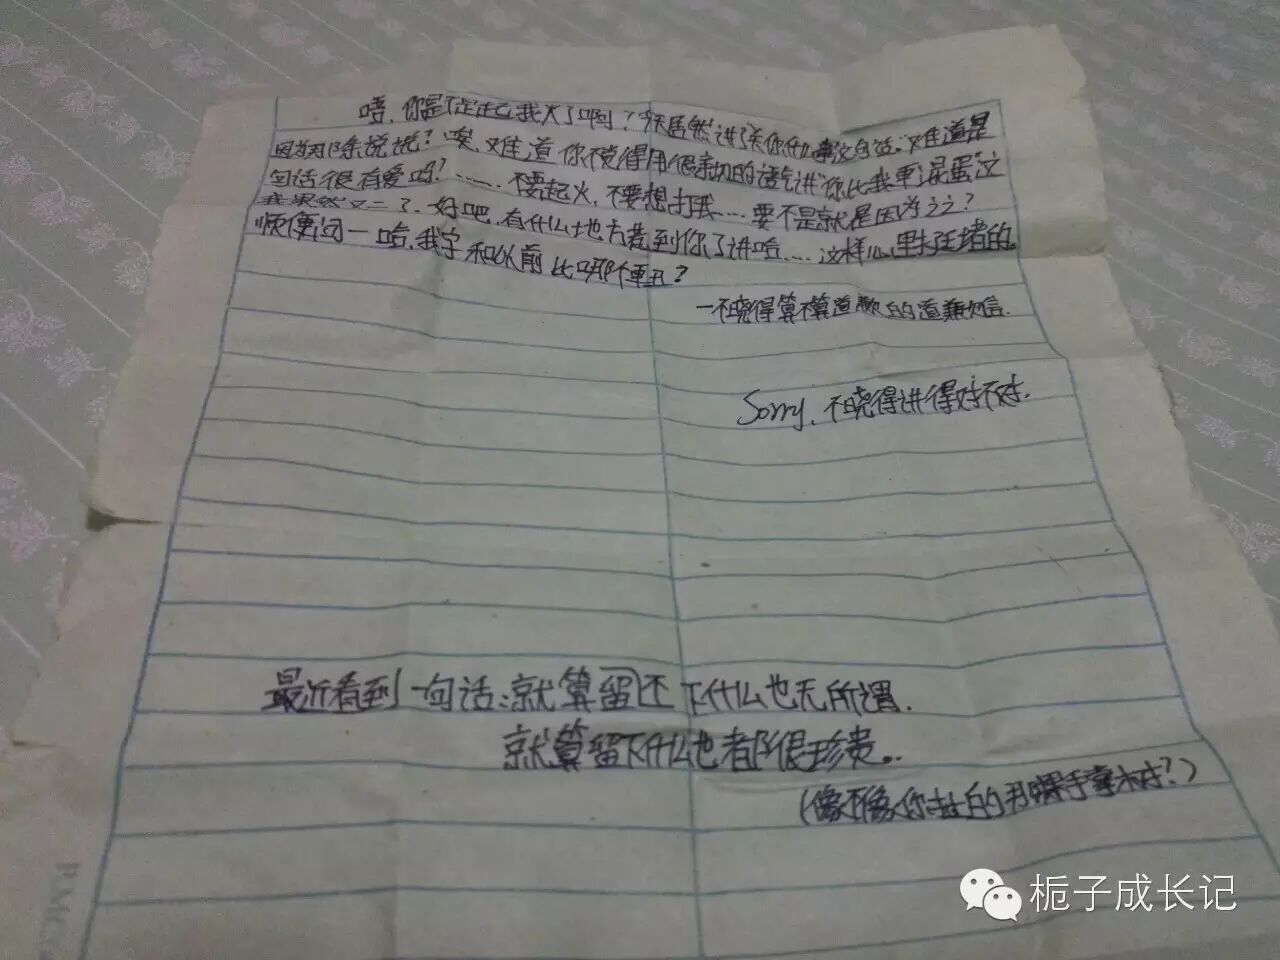 唔，你是不是起我火了啊？居然讲了关你什么事这句话。难道是
因为那条说说？唉，难道你不觉得用很亲切的语气讲“你比我更混蛋”这
句话很有爱吗？……不要起火，不要想打我……要不是就是因为之之？
我果然又二了，好吧，有什么地方惹到你了讲哈……这样心里挺堵的。
顺便问一哈，我字和以前比哪个更丑？
一不晓得算不算道歉的道歉信.
Sorry，不晓得讲得对不对.
最近看到一句话：就算留不下什么也无所谓.
就算留下什么也都很珍贵。.
(像不像你扯的
栀子成长记